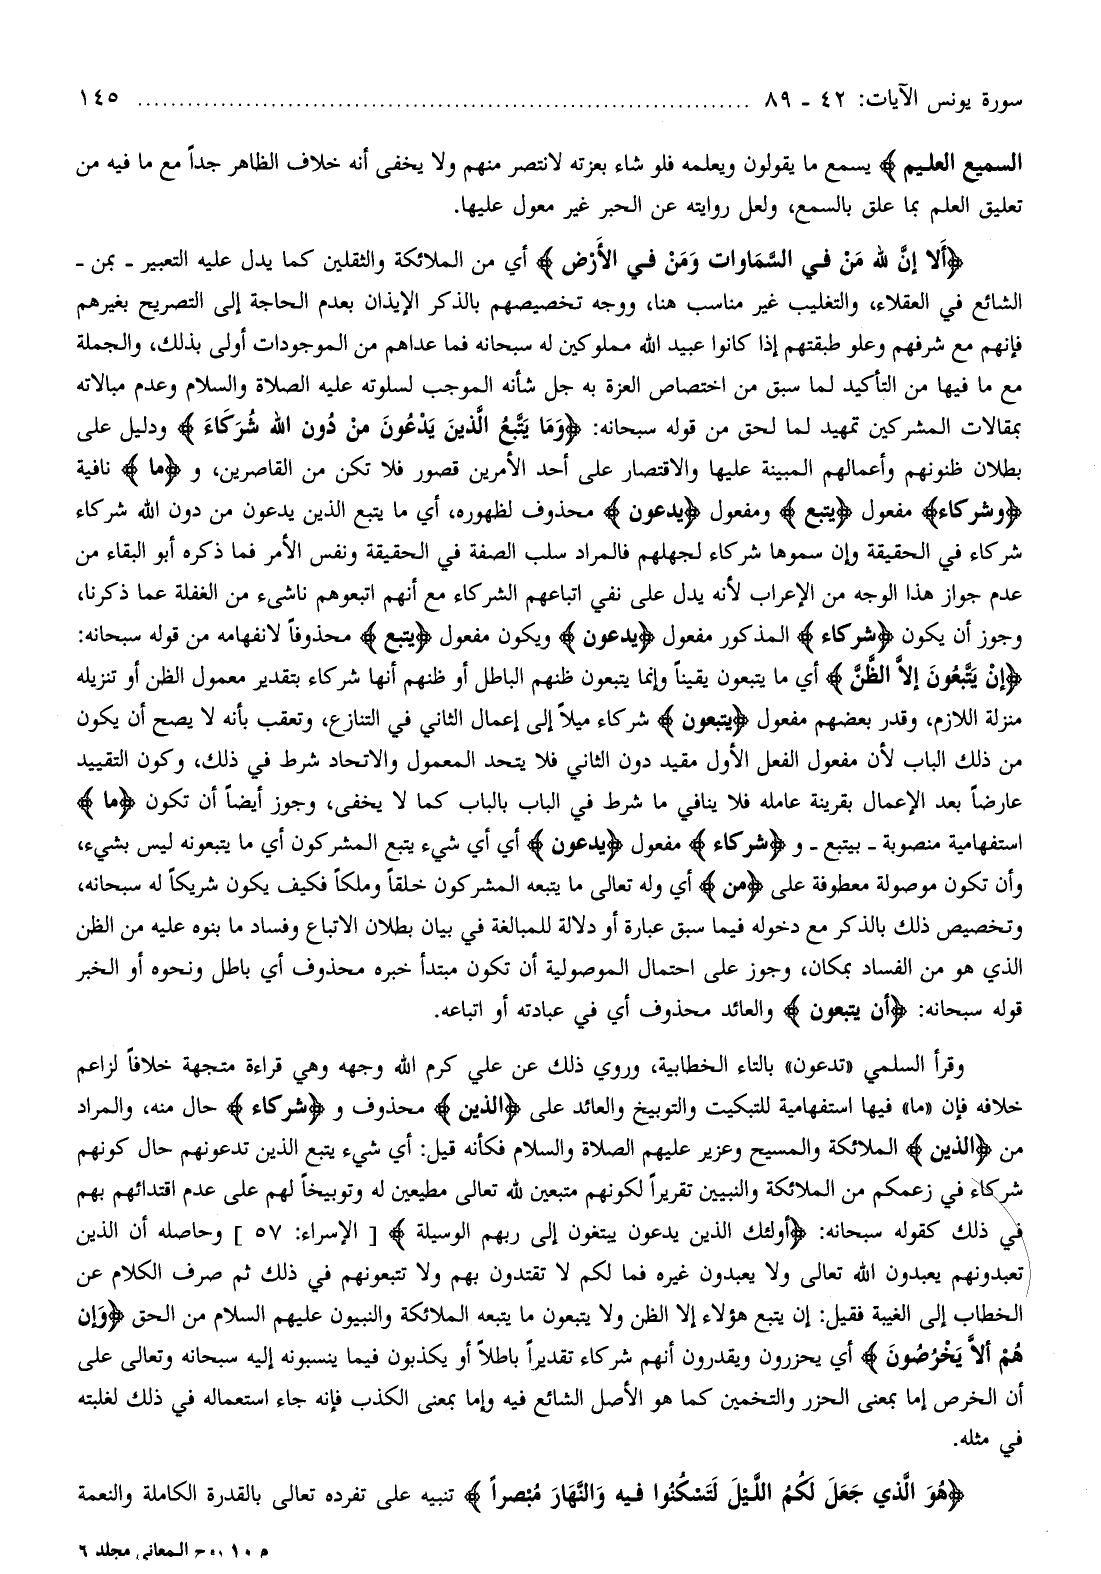 سورة يونس الآيات: ٤٢ ـ ٨٩ ........................................................................................ ١٤٥
السميع العليم ﴾ يسمع ما يقولون ويعلمه فلو شاء بعزته لانتصر منهم ولا يخفى أنه خلاف الظاهر جداً مع ما فيه من
تعليق العلم بما علق بالسمع، ولعل روايته عن الحبر غير معول عليها.
﴿أَلا إنَّ لله مَنْ في السَّمَاوات وَمَنْ في الأَرْض ﴾ أي من الملائكة والثقلين كما يدل عليه التعبير ـ بمن ـ
الشائع في العقلاء، والتغليب غير مناسب هنا، ووجه تخصيصهم بالذكر الإيذان بعدم الحاجة إلى التصريح بغيرهم
فإنهم مع شرفهم وعلو طبقتهم إذا كانوا عبيد الله مملوكين له سبحانه فما عداهم من الموجودات أولى بذلك، والجملة
مع ما فيها من التأكيد لما سبق من اختصاص العزة به جل شأنه الموجب لسلوته عليه الصلاة والسلام وعدم مبالاته
بمقالات المشركين تمهيد لما لحق من قوله سبحانه: ﴿وَمَا يَتَّبعُ الَّذينَ يَدْعُونَ منْ دُون الله شُرَكَاءَ ﴾ ودليل على
بطلان ظنونهم وأعمالهم المبينة عليها والاقتصار على أحد الأمرين قصور فلا تكن من القاصرين، و ﴿ما ﴾ نافية
﴿وشركاء﴾ مفعول ﴿يتبع ﴾ ومفعول ﴿يدعون ﴾ محذوف لظهوره، أي ما يتبع الذين يدعون من دون الله شركاء
شركاء في الحقيقة وإن سموها شركاء لجهلهم فالمراد سلب الصفة في الحقيقة ونفس الأمر فما ذكره أبو البقاء من
عدم جواز هذا الوجه من الإعراب لأنه يدل على نفي اتباعهم الشركاء مع أنهم اتبعوهم ناشىء من الغفلة عما ذكرنا،
وجوز أن يكون ﴿شركاء ﴾ المذكور مفعول ﴿يدعون ﴾ ويكون مفعول ﴿يتبع ﴾ محذوفاً لانفهامه من قوله سبحانه:
﴿إنْ يَتَّبعُونَ إلاَّ الظَّنَّ ﴾ أي ما يتبعون يقيناً وإنما يتبعون ظنهم الباطل أو ظنهم أنها شركاء بتقدير معمول الظن أو تنزيله
منزلة اللازم، وقدر بعضهم مفعول ﴿يتبعون ﴾ شركاء ميلاً إلى إعمال الثاني في التنازع، وتعقب بأنه لا يصح أن يكون
من ذلك الباب لأن مفعول الفعل الأول مقيد دون الثاني فلا يتحد المعمول والاتحاد شرط في ذلك، وكون التقييد
عارضاً بعد الإعمال بقرينة عامله فلا ينافي ما شرط في الباب بالباب كما لا يخفى، وجوز أيضاً أن تكون ﴿ما ﴾
استفهامية منصوبة ـ بيتبع ـ و ﴿شركاء ﴾ مفعول ﴿يدعون ﴾ أي أي شيء يتبع المشركون أي ما يتبعونه ليس بشيء،
وأن تكون موصولة معطوفة على ﴿من ﴾ أي وله تعالى ما يتبعه المشركون خلقاً وملكاً فكيف يكون شريكاً له سبحانه،
وتخصيص ذلك بالذكر مع دخوله فيما سبق عبارة أو دلالة للمبالغة في بيان بطلان الاتباع وفساد ما بنوه عليه من الظن
الذي هو من الفساد بمكان، وجوز على احتمال الموصولية أن تكون مبتدأ خبره محذوف أي باطل ونحوه أو الخبر
قوله سبحانه: ﴿أن يتبعون ﴾ والعائد محذوف أي في عبادته أو اتباعه.
وقرأ السلمي «تدعون» بالتاء الخطابية، وروي ذلك عن علي كرم الله وجهه وهي قراءة متجهة خلافاً لزاعم
خلافه فإن «ما» فيها استفهامية للتبكيت والتوبيخ والعائد على ﴿الذين ﴾ محذوف و ﴿شركاء ﴾ حال منه، والمراد
من ﴿الذين ﴾ الملائكة والمسيح وعزير عليهم الصلاة والسلام فكأنه قيل: أي شيء يتبع الذين تدعونهم حال كونهم
شركاء في زعمكم من الملائكة والنبيين تقريراً لكونهم متبعين لله تعالى مطيعين له وتوبيخاً لهم على عدم اقتدائهم بهم
في ذلك كقوله سبحانه: ﴿أولئك الذين يدعون يبتغون إلى ربهم الوسيلة ﴾ [ الإسراء: ٥٧ ] وحاصله أن الذين
تعبدونهم يعبدون الله تعالى ولا يعبدون غيره فما لكم لا تقتدون بهم ولا تتبعونهم في ذلك ثم صرف الكلام عن
الخطاب إلى الغيبة فقيل: إن يتبع هؤلاء إلا الظن ولا يتبعون ما يتبعه الملائكة والنبيون عليهم السلام من الحق ﴿وَإن
هُمْ ألاَّ يَخْرُصُونَ ﴾ أي يحزرون ويقدرون أنهم شركاء تقديراً باطلاً أو يكذبون فيما ينسبونه إليه سبحانه وتعالى على
أن الخرص إما بمعنى الحزر والتخمين كما هو الأصل الشائع فيه وإما بمعنى الكذب فإنه جاء استعماله في ذلك لغلبته
في مثله.
﴿هُوَ الَّذي جَعَلَ لَكُمُ اللَّيْلَ لَتَسْكُنُوا فيه وَالنَّهَارَ مُبْصراً ﴾ تنبيه على تفرده تعالى بالقدرة الكاملة والنعمة
م ١٠ روح المعاني مجلد ٦